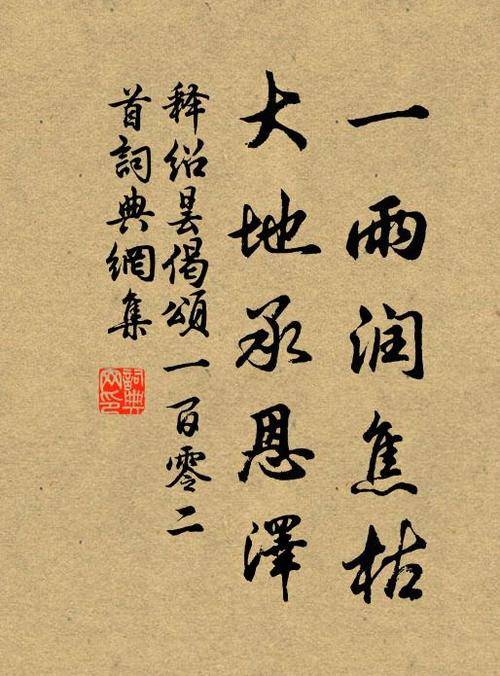 一雨润焦枯
大地承恩澤
释绍昙偈頌一百零二
首詞典網集
詞典網印